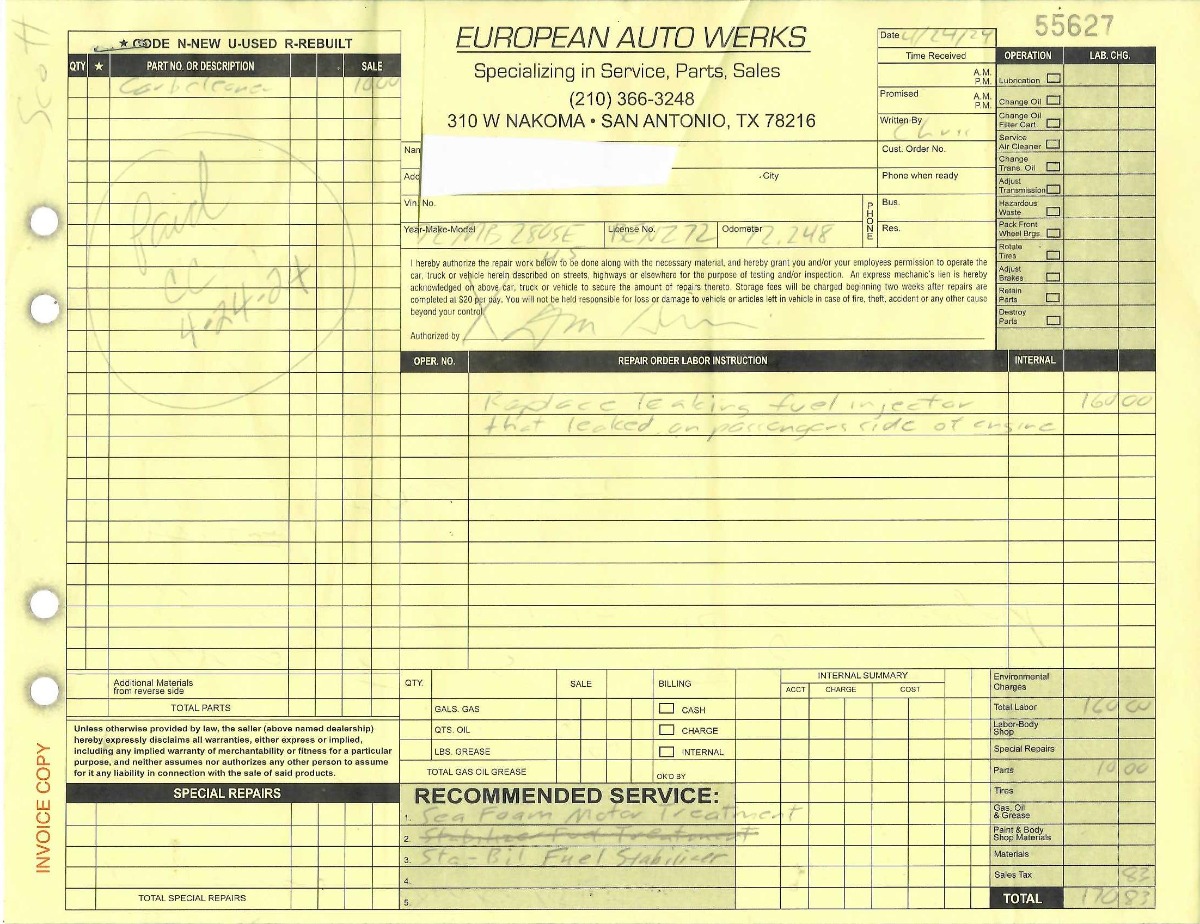 Scott
★ CODE N-NEW U-USED R-REBUILT
QTY ★ PART NO. OR DESCRIPTION SALE
Carb cleaner 10 00
Paid
CC
4-24-24
EUROPEAN AUTO WERKS
Specializing in Service, Parts, Sales
(210) 366-3248
310 W NAKOMA • SAN ANTONIO, TX 78216
55627
Date 4/24/24
Time Received
A.M.
P.M.
Promised A.M.
P.M.
Written By Chris
Nam
Add City
Cust. Order No.
Phone when ready
Vin. No.
PHONE
Bus.
Res.
Year-Make-Model 72 MB 280SE 4.5
License No. BENZ72
Odometer 72,248
I hereby authorize the repair work below to be done along with the necessary material, and hereby grant you and/or your employees permission to operate the
car, truck or vehicle herein described on streets, highways or elsewhere for the purpose of testing and/or inspection. An express mechanic's lien is hereby
acknowledged on above car, truck or vehicle to secure the amount of repairs thereto. Storage fees will be charged beginning two weeks after repairs are
completed at $20 per day. You will not be held responsible for loss or damage to vehicle or articles left in vehicle in case of fire, theft, accident or any other cause
beyond your control.
Authorized by X
OPERATION LAB. CHG.
Lubrication
Change Oil
Change Oil
Filter Cart
Service
Air Cleaner
Change
Trans. Oil
Adjust
Transmission
Hazardous
Waste
Pack Front
Wheel Brgs.
Rotate
Tires
Adjust
Brakes
Retain
Parts
Destroy
Parts
OPER. NO. REPAIR ORDER LABOR INSTRUCTION INTERNAL
Replace leaking fuel injector 160 00
that leaked on passengers side of engine
Additional Materials
from reverse side
TOTAL PARTS
Unless otherwise provided by law, the seller (above named dealership)
hereby expressly disclaims all warranties, either express or implied,
including any implied warranty of merchantability or fitness for a particular
purpose, and neither assumes nor authorizes any other person to assume
for it any liability in connection with the sale of said products.
SPECIAL REPAIRS
TOTAL SPECIAL REPAIRS
INVOICE COPY
QTY. SALE BILLING
GALS. GAS CASH
QTS. OIL CHARGE
LBS. GREASE INTERNAL
TOTAL GAS OIL GREASE OK'D BY
INTERNAL SUMMARY
ACCT CHARGE COST
RECOMMENDED SERVICE:
1. Sea Foam Motor Treatment
2. Stabilizer Fuel Treatment
3. Sta-Bil Fuel Stabilizer
4.
5.
Environmental
Charges
Total Labor 160 00
Labor-Body
Shop
Special Repairs
Parts 10 00
Tires
Gas, Oil
& Grease
Paint & Body
Shop Materials
Materials
Sales Tax 83
TOTAL 170 83